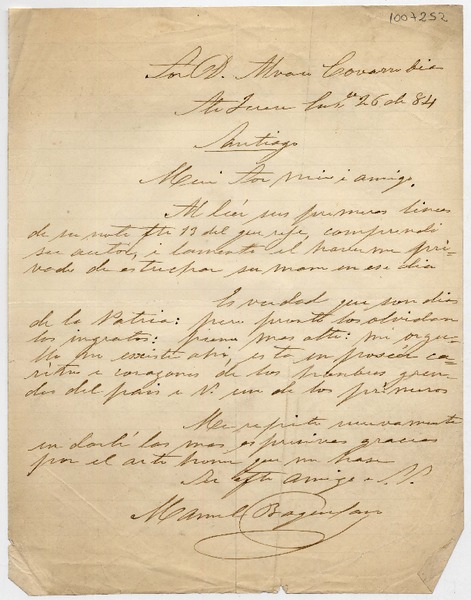 1007252
Sor D. Alvaro Covarrubia
26 de 84
Santiago
Mui Sor mio i amigo.
Al leér sus primeras lineas
de su nota fte 13 del que rije, comprendi
su autor, i lamenté el haberme pri-
vado de estrechar su mano en ese dia
Es verdad que son dias
de la Patria: pero pronto los olvidan
los ingratos: mas alto: mi orgu-
llo no existe ahi, está en poseér ca-
ritas i corazones de los hombres gran-
des del pais i V. uno de los primeros
Me repito nuevamente
en darle las mas espresivas gracias
por el alto honor que me hace
Su afto amigo i S.
Manuel